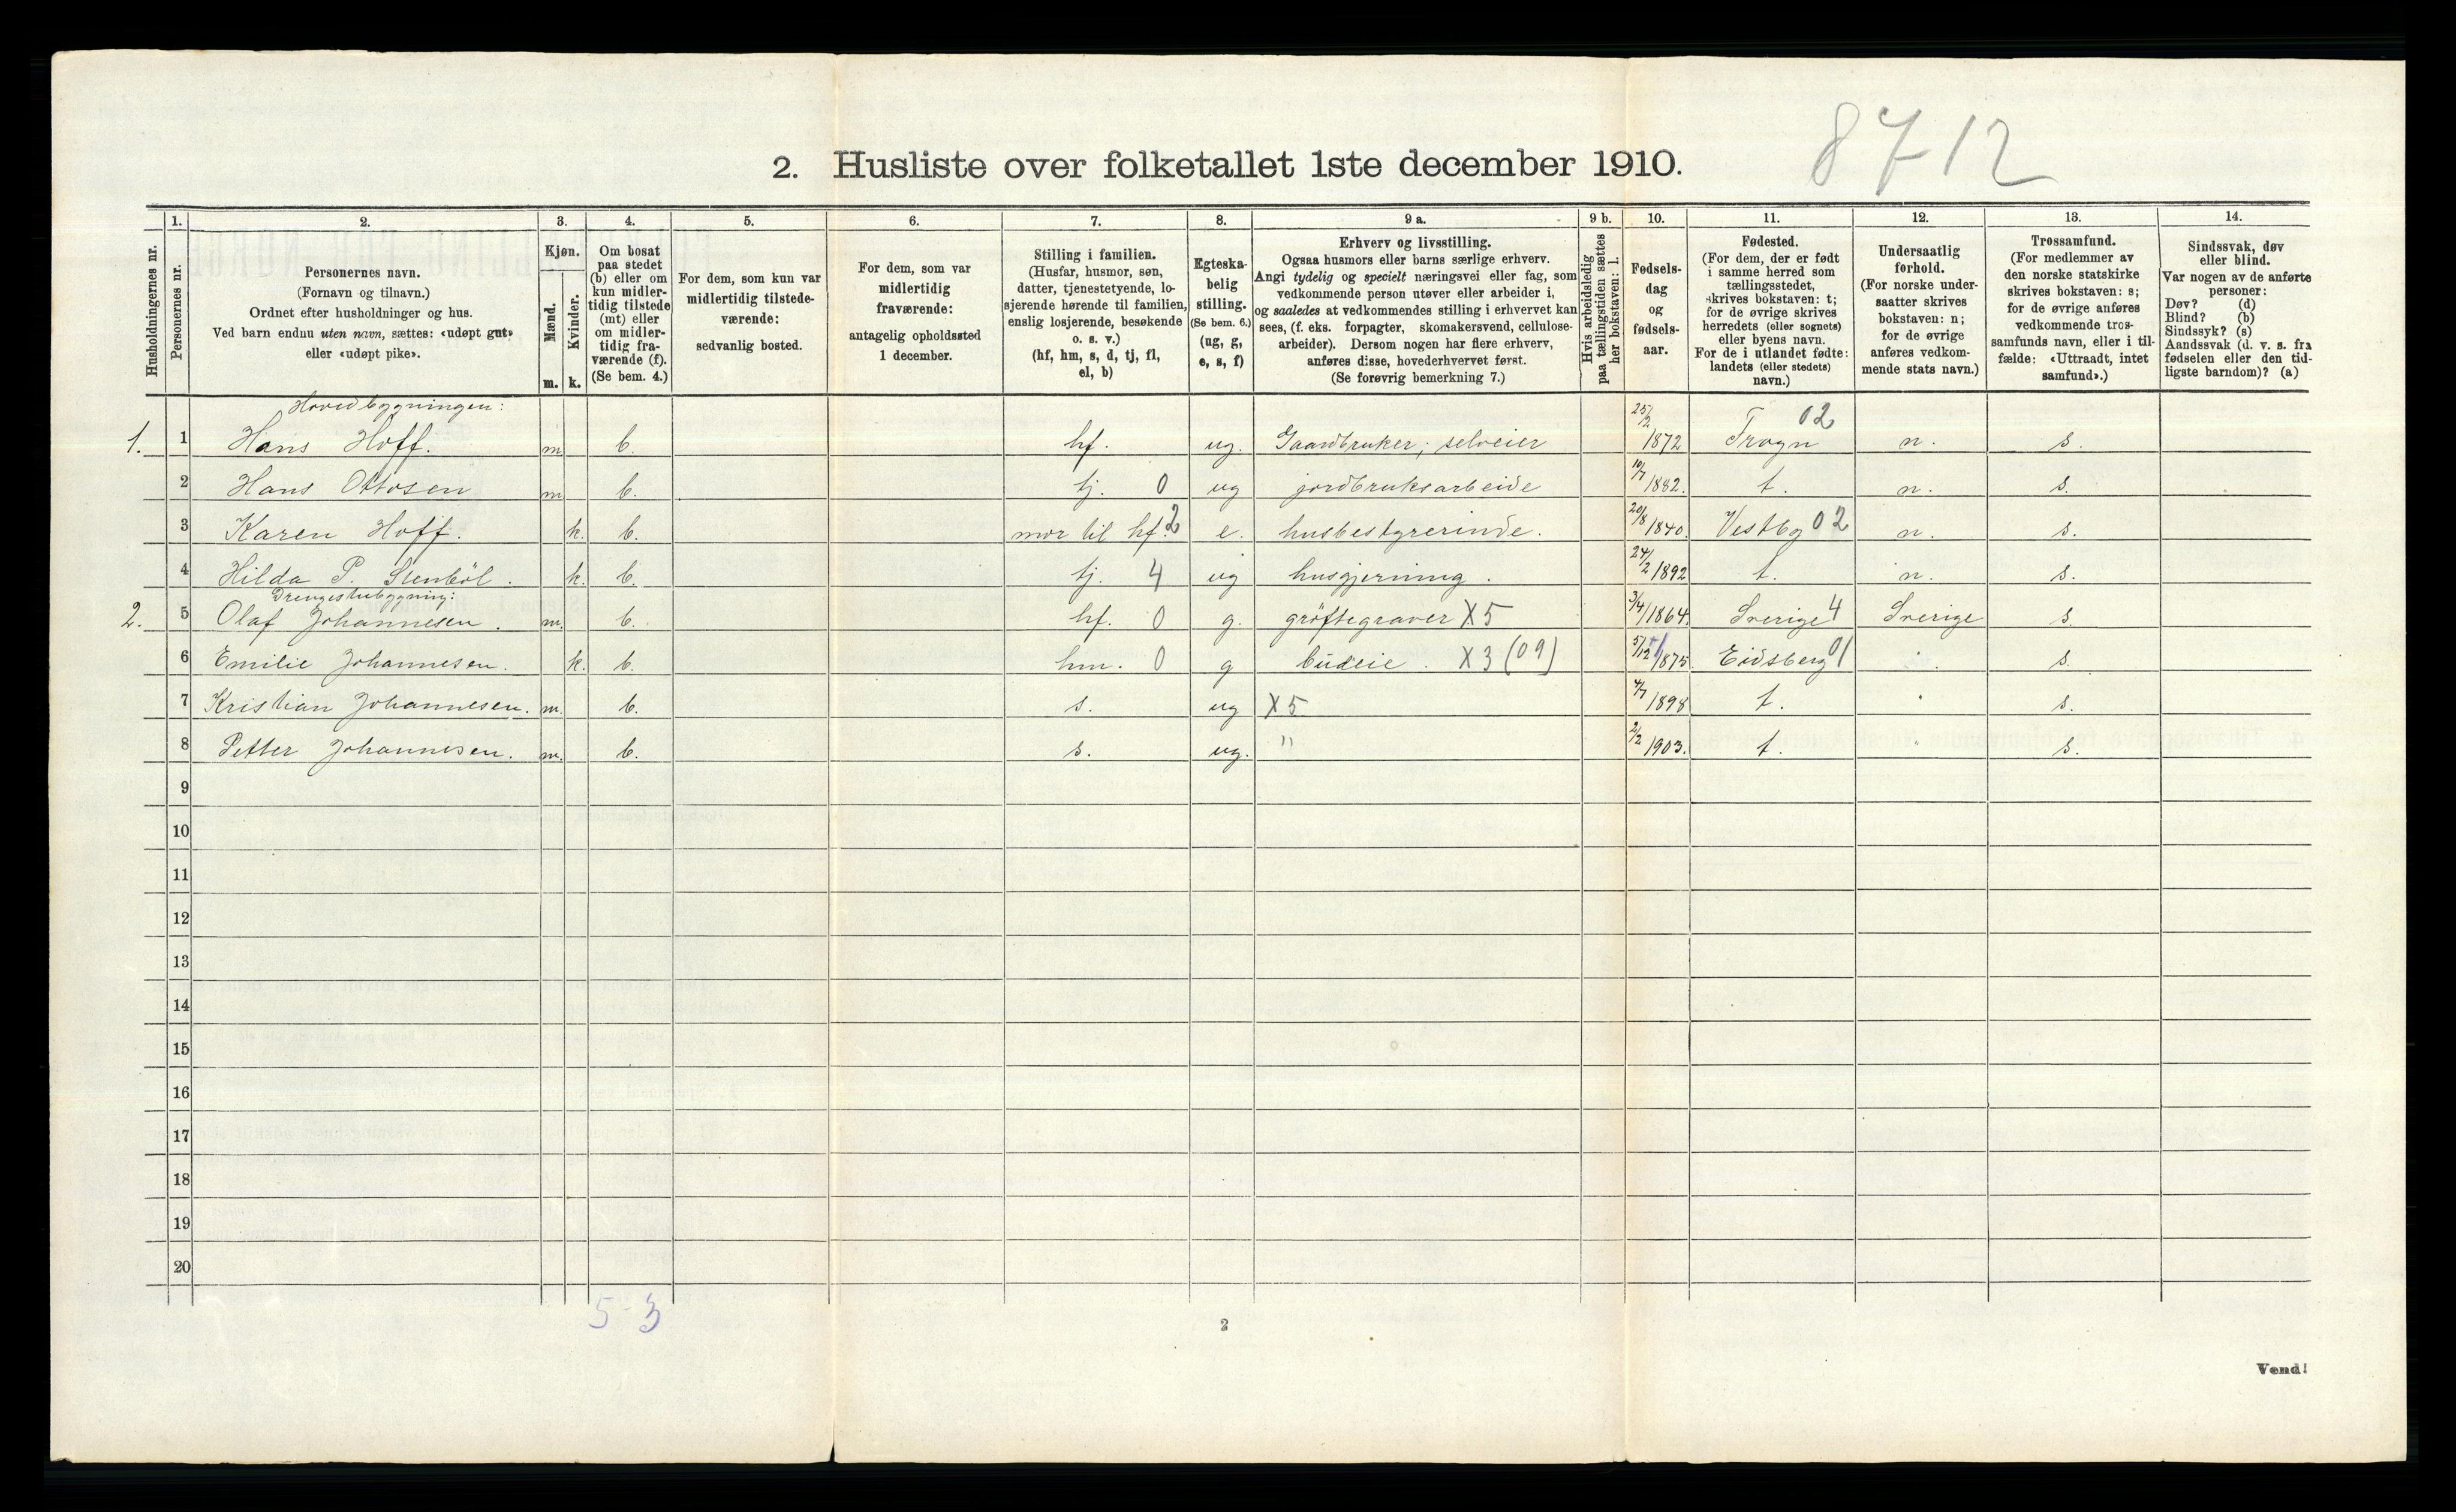 8712
2. Husliste over folketallet 1ste december 1910.
Husholdningernes nr.
1. Personernes nr.
2. Personernes navn.
(Fornavn og tilnavn.)
Ordnet efter husholdninger og hus.
Ved barn endnu uten navn, sættes: «udøpt gut»
eller «udøpt pike».
3. Kjøn.
Mænd. Kvinder.
m. k.
4. Om bosat
paa stedet
(b) eller om
kun midler-
tidig tilstede
(mt) eller
om midler-
tidig fra-
værende (f).
(Se bem. 4.)
5. For dem, som kun var
midlertidig tilstede-
værende:
sedvanlig bosted.
6. For dem, som var
midlertidig
fraværende:
antagelig opholdssted
1 december.
7. Stilling i familien.
(Husfar, husmor, søn,
datter, tjenestetyende, lo-
sjerende hørende til familien,
enslig losjerende, besøkende
o. s. v.)
(hf, hm, s, d, tj, fl,
el, b)
8. Egteska-
belig
stilling.
(Se bem. 6.)
(ug, g,
e, s, f)
9 a. Erhverv og livsstilling.
Ogsaa husmors eller barns særlige erhverv.
Angi tydelig og specielt næringsvei eller fag, som
vedkommende person utøver eller arbeider i,
og saaledes at vedkommendes stilling i erhvervet kan
sees, (f. eks. forpagter, skomakersvend, cellulose-
arbeider). Dersom nogen har flere erhverv,
anføres disse, hovederhvervet først.
(Se forøvrig bemerkning 7.)
9 b. Hvis arbeidsledig
paa tællingstiden sættes
her bokstaven: l.
10. Fødsels-
dag
og
fødsels-
aar.
11. Fødested.
(For dem, der er født
i samme herred som
tællingsstedet,
skrives bokstaven: t;
for de øvrige skrives
herredets (eller sognets)
eller byens navn.
For de i utlandet fødte:
landets (eller stedets)
navn.)
12. Undersaatlig
forhold.
(For norske under-
saatter skrives
bokstaven: n;
for de øvrige
anføres vedkom-
mende stats navn.)
13. Trossamfund.
(For medlemmer av
den norske statskirke
skrives bokstaven: s;
for de øvrige anføres
vedkommende tros-
samfunds navn, eller i til-
fælde: «Uttraadt, intet
samfund».)
14. Sindssvak, døv
eller blind.
Var nogen av de anførte
personer:
Døv? (d)
Blind? (b)
Sindssyk? (s)
Aandssvak (d. v. s. fra
fødselen eller den tid-
ligste barndom)? (a)
Hovedbygningen:
1. 1 Hans Hoff. m b. hf. ug. Gaardbruker; selveier 25/2 1872 Frogn 02 n. s.
2 Hans Ottosen m b. tj. 0 ug jordbruksarbeide 10/7 1882. t. n. s.
3 Karen Hoff. k. b. mor til hf. 2 e. husbestyrerinde. 20/8 1840. Vestby 02 n. s.
4 Hilda P. Stenböl. k. b. tj. 4 ug husgjerning. 24/2 1892 t. n. s.
Drengestubygning:
2. 5 Olaf Johannesen. m. b. hf. 0 g. gröftegraver X5 3/4 1864. Sverige 4 Sverige s.
6 Emilie Johannesen. k. b. hm. 0 g budeie. X3 (09) 5/12 1875. Eidsberg 01 " s.
7 Kristian Johannesen. m. b. s. ug X5 4/7 1898 t. " s.
8 Petter Johannesen. m. b. s. ug. " 2/2 1903. t. " s.
9
10
11
12
13
14
15
16
17
18
19
20
5-3
2
Vend!